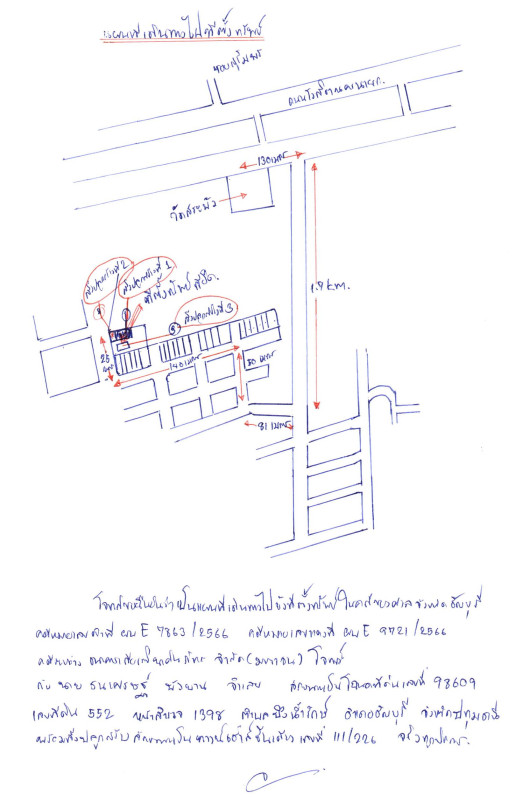 แผนที่เดินทางไปที่ตั้งทรัพย์
ถนนรังสิตนครนายก
130 เมตร
วัดสระบัว
1.9 km.
สิ่งปลูกสร้างที่ 2
สิ่งปลูกสร้างที่ 1
ที่ตั้งทรัพย์ที่ยึด
สิ่งปลูกสร้างที่ 3
25 เมตร
140 เมตร
50 เมตร
81 เมตร
โจทก์ขอยืนยันว่าเป็นแผนที่เดินทางไปยังที่ตั้งทรัพย์ในคดีของศาลจังหวัดธัญบุรี
คดีหมายเลขดำที่ ผบ E 7863/2566 คดีหมายเลขแดงที่ ผบ E 9721/2566
คดีระหว่าง ธนาคาร จำกัด (มหาชน) โจทก์
กับ นาย ธนเศรษฐ์ จำเลย โฉนดที่ดินเลขที่ 98609
เลขที่ดิน 552 หน้าสำรวจ 1398 ตำบลบึงน้ำรักษ์ อำเภอธัญบุรี จังหวัดปทุมธานี
พร้อมสิ่งปลูกสร้าง ทาวน์เฮ้าส์ชั้นเดียว เลขที่ 111/226 จริงทุกประการ